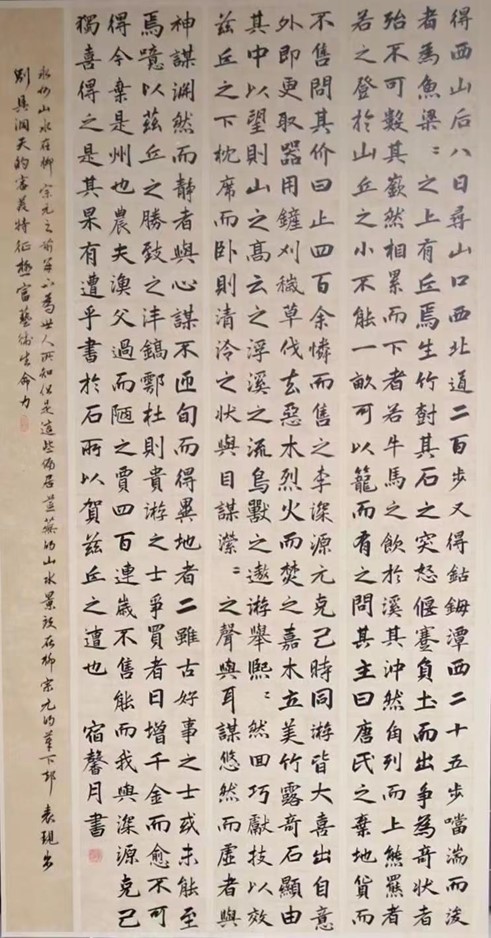 得西山后八日尋山口西北道二百步又得鈷鉧潭西二十五步噹湍而浚
者為魚梁〻之上有丘焉生竹樹其石之突怒偃蹇負土而出爭為奇狀者
殆不可數其嶔然相累而下者若牛馬之飲於溪其沖然角列而上熊羆者
若之登於山丘之小不能一畝可以籠而有之問其主曰唐氏之棄地貨而
不售問其价曰止四百余憐而售之李深源元克己時同游皆大喜出自意
外即更取器用鏟刈穢草伐去惡木烈火而焚之嘉木立美竹露奇石顯由
其中以望則山之高云之浮溪之流鳥獸之遨游舉熙〻然回巧獻技以效
茲丘之下枕席而卧則清泠之狀與目謀瀠〻之聲與耳謀悠然而虛者與
神謀渊然而靜者與心謀不匝旬而得異地者二雖古好事之士或未能至
焉噫以茲丘之勝致之沣鎬鄠杜則貴游之士爭買者日增千金而愈不可
得今棄是州也農夫漁父過而陋之賈四百連歲不售能而我與深源克己
獨喜得之是其果有遭乎書於石所以賀茲丘之遭也 宿馨月書
永州山水在柳宗元之前并不為世人所知但是這些偏居荒蕪的山水景致在柳宗元的筆下卻表現出
別具洞天的審美特征極富藝術生命力